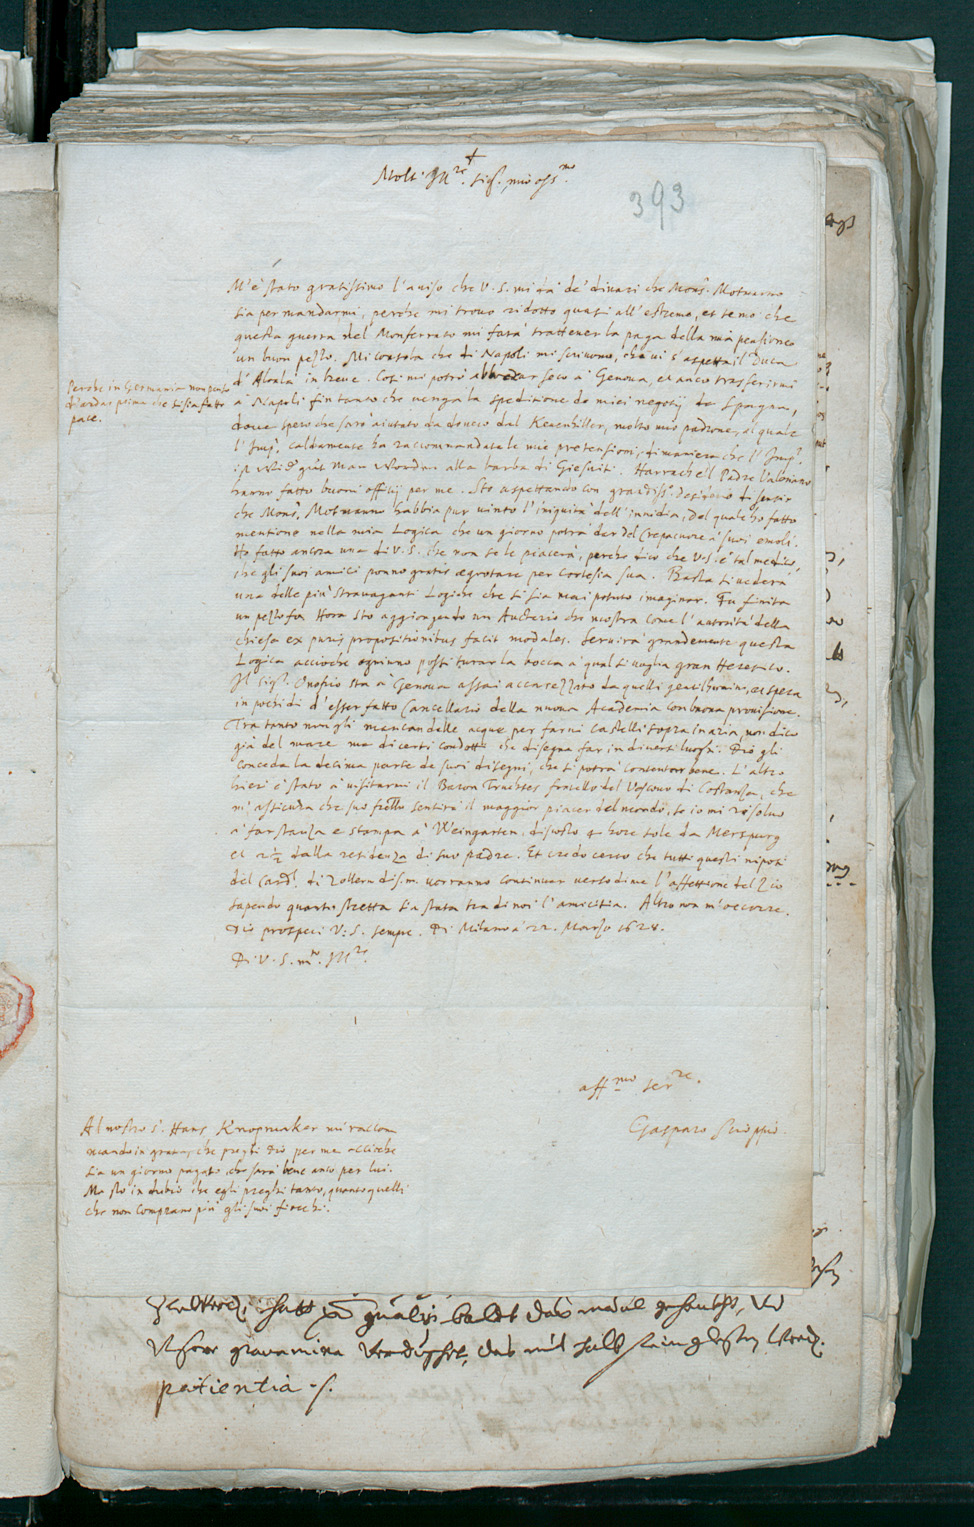 Molt' Ill.re Sig.r mio oss.mo
393
M'è stato gratissimo l'aviso che V.S. mi dà de' dinari che Mons. Motmanno
sia per mandarmi, perche mi trovo ridotto quasi all'estremo, et temo che
questa guerra del Monferrato mi farà trattener la paga della mia pensione
un buon pezzo. Mi consola che di Napoli mi scrivono, che vi s'aspetta il Duca
d'Alcala in breve. Così mi potrò abboccar seco à Genova, et anco trasferirmi
Perche in Germania non penso
d'andar prima che si sia fatto
pace.
à Napoli fin tanto che venga la speditione de miei negotij da Spagna,
dove spero che sarò aiutato da dovero dal Kevenhiller, molto mio padrone, al quale
l'Imp.r caldamente ha raccommandate le mie pretensioni, di maniera che l'Imp.r
ist Wider gut Man Worden alla barba di Giesuiti. Harrach e'l Padre Valeriano
hanno fatto buoni officij per me. Sto aspettando con grandiss.o desiderio di sentir
che Mons.r Motmanno habbia pur vinto l'iniquità dell'invidia, del quale ho fatto
mentione nella mia Logica che un giorno potrà dar del crepacuore à suoi emoli.
Ho fatto ancora una di V.S. che non se le piacerà, perche dico che V.S. è tal medico,
che gli suoi amici ponno gratis aegrotare per cortesia sua. Basta si vederà
una delle più stravaganti Logiche che si sia mai potuto imaginar. Fu finita
un pezzo fa. Hora sto aggiongendo un Auctario che mostra come l'autorità della
chiesa ex puris propositionibus facit modales. Servirà grandemente questa
Logica accioche ogniuno possi turar la bocca à qual si voglia gran Heretico.
Il Sig.r Onofrio sta à Genova assai accarezzato da quelli gentilhuomini, et spera
in pochi dì d'esser fatto Cancellario della nuova Academia con buona provisione.
Tra tanto non gli mancan delle acque per farvi castelli sopra in aria, non dico
già del mare ma di certi condotti che disegna far in diversi luoghi. Dio gli
conceda la decima parte de suoi disegni, che si potrà contentar bene. L'altro
hieri è stato à visitarmi il Baron Truchses fratello del Vescovo di Costanza, che
m'assicura che suo fratello sentirà il maggior piacer del mondo, se io mi risolvo
à far stanza e stampa à Weingarten, discosto 4 hore sole da Merspurg
et 2½ dalla residenza di suo padre. Et credo certo che tutti questi nipoti
del Card.l di Zollern di s.m. vorranno continuar verso di me l'affettione del Zio
sapendo quanto stretta sia stata tra di noi l'amicitia. Altro non m'occorre.
Dio prosperi V.S. sempre. Di Milano à 22. Marzo 1628.
Di V.S. m.to Ill.re
aff.mo ser.re
Gasparo Scioppio.
Al nostro S.r Hans Knopmaker mi raccom
mando in gratia, che preghi Dio per me accioche
sia un giorno pagato, che sarà bene anco per lui.
Ma sto in dubio che egli preghi tanto, quanto quelli
che non comprano più gli suoi fiocchi.
patientia